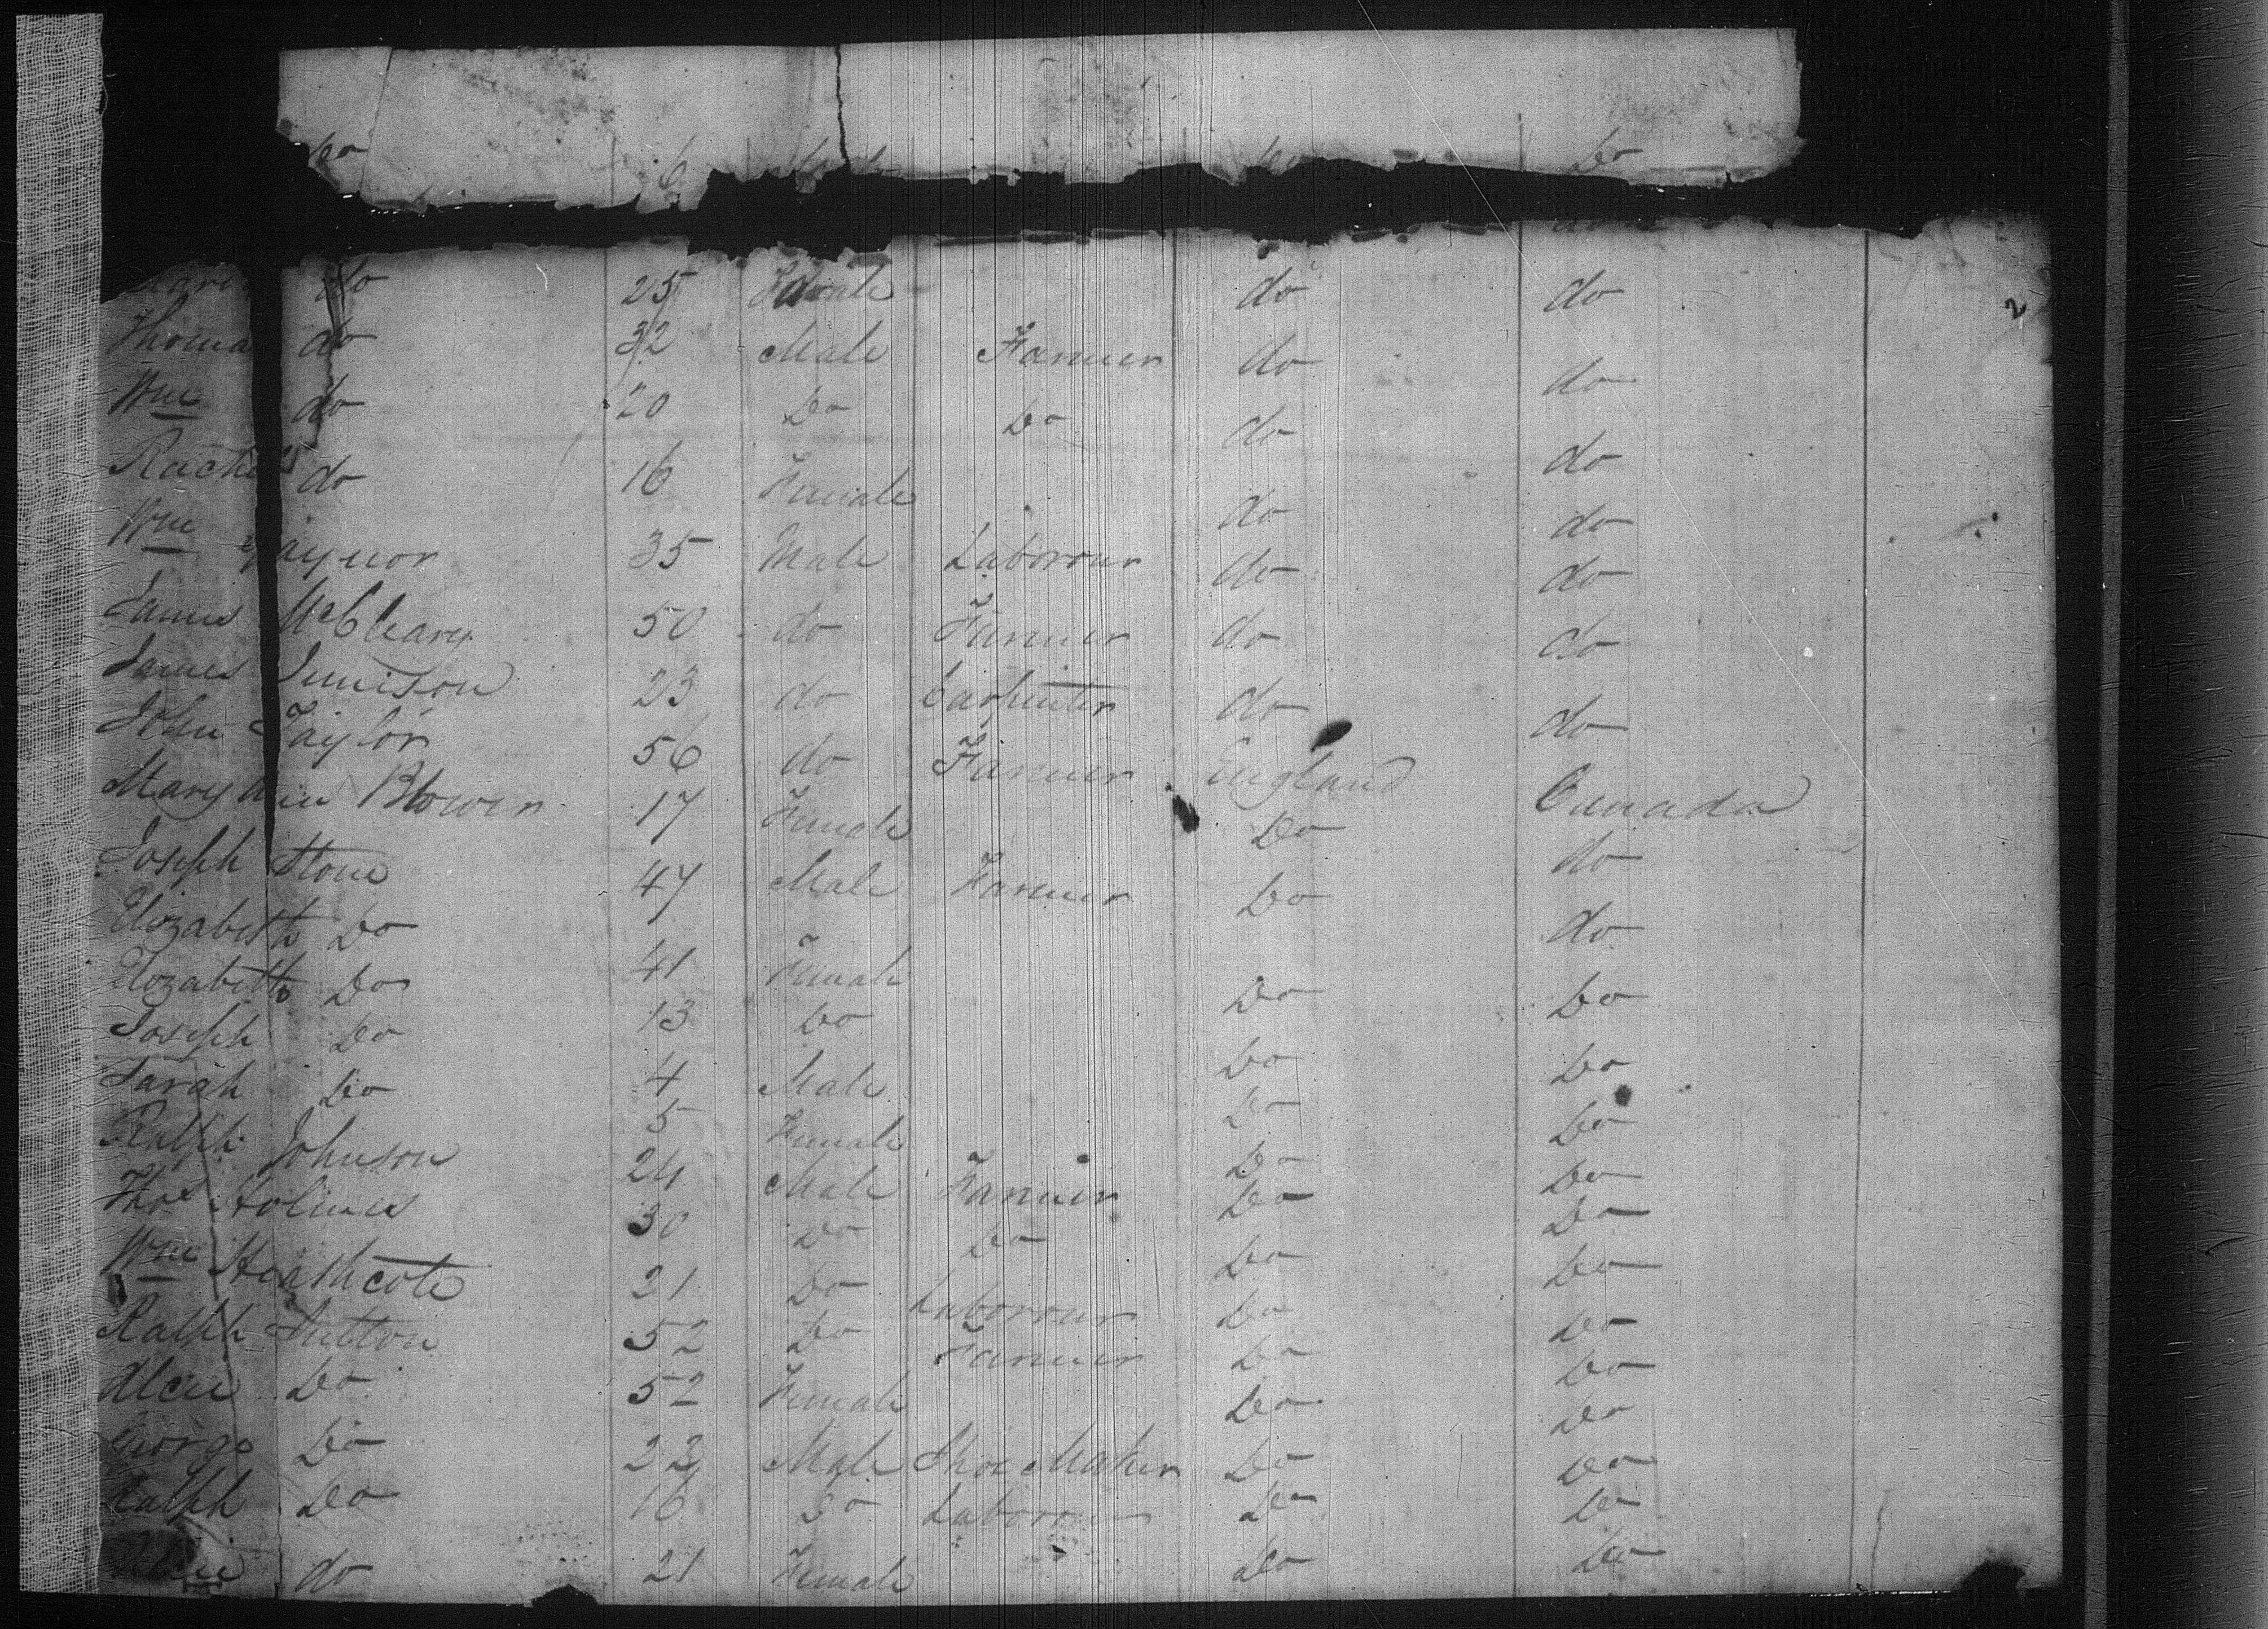 Do 6 Do Do
do 25 Female do do
Thomas do 32 Male Farmer do do
Wm do 20 Do Do do do
Rachel do 16 Female do do
Wm Gaynor 35 Male Laborour do do
James McCleary 50 do Farmer do do
James Jemison 23 do Carpenter do do
John Taylor 56 do Farmer England Canada
Mary Ann Blower 17 Female Do do
Joseph Stone 47 Male Farmer Do do
Elizabeth Do 41 Female Do Do
Elizabeth Do 13 Do Do Do
Joseph Do 4 Male Do Do
Sarah Do 5 Female Do Do
Ralph Johnson 24 Male Farmer Do Do
Thos Holmes 30 Do Do Do Do
Wm Heathcote 21 Do Laborour Do Do
Ralph Sutton 52 Do Farmer Do Do
Do 52 Female Do Do
George Do 22 Male Shoe Maker Do Do
Ralph Do 16 Do Laborour Do Do
do 21 Female Do Do
2